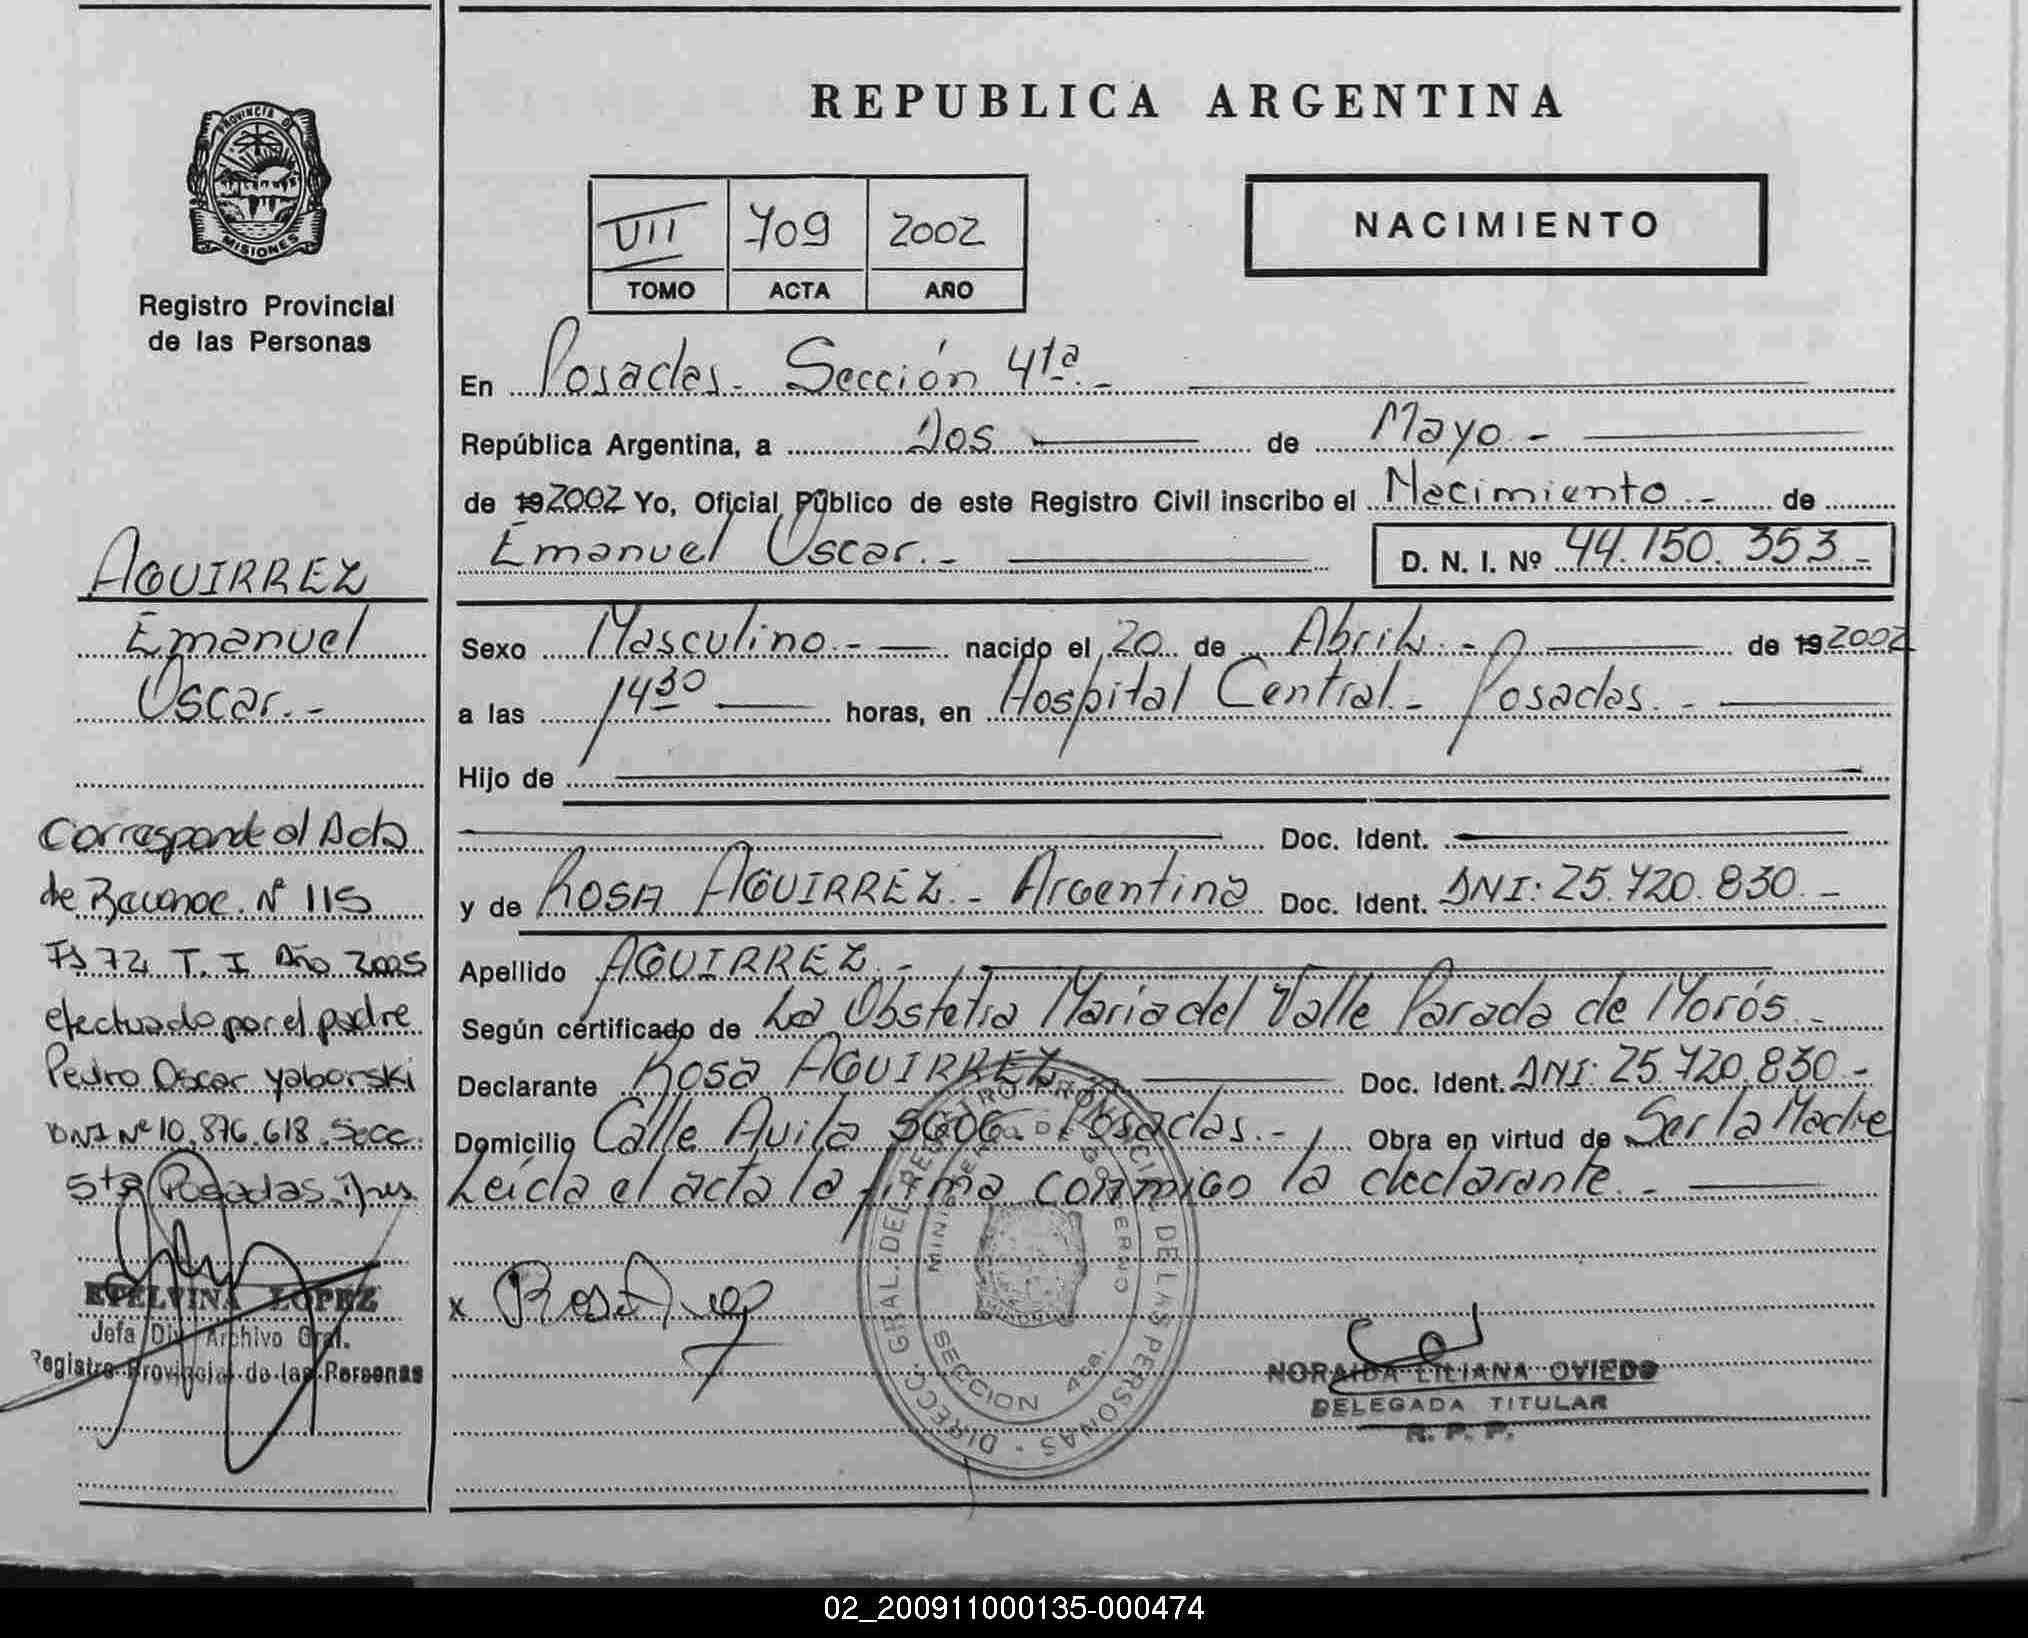 REPUBLICA ARGENTINA
PROVINCIA DE
MISIONES
Registro Provincial
de las Personas
VII 709 2002
TOMO ACTA AÑO
NACIMIENTO
En Posadas.- Sección 4ta.-
República Argentina, a Dos de Mayo.-
de 19 2002 Yo, Oficial Público de este Registro Civil inscribo el Nacimiento.- de
Emanuel Oscar.-
D. N. I. Nº 44.150.353.-
AGUIRREZ
Emanuel
Oscar.-
Sexo Masculino.- nacido el 20 de Abril.- de 19 2002
a las 14 30 horas, en Hospital Central.- Posadas.-
Hijo de
Doc. Ident.
y de Rosa AGUIRREZ.- Argentina Doc. Ident. DNI: 25.720.830.-
Apellido AGUIRREZ.-
Según certificado de La Obstetra Maria del Valle Parada de Morós.-
Declarante Rosa AGUIRREZ Doc. Ident. DNI: 25.720.830.-
Domicilio Calle Avila 5606.- Posadas.- Obra en virtud de Ser la Madre
Leída el acta la firma conmigo la declarante.-
Corresponde al Acta
de Reconoc. Nº 115
Fs 72 T. I Año 2005
efectuado por el padre
Pedro Oscar Yaborski
DNI Nº 10.876.618 Secc.
5ta Posadas, Mnes.
ETELVINA LOPEZ
Jefa Div. Archivo Gral.
Registro Provincial de las Personas
x Rosa
DIRECC. GRAL. DEL REGISTRO PROVINCIAL DE LAS PERSONAS
MINISTERIO DE GOBIERNO
SECCION 4ta.
NORAIDA LILIANA OVIEDO
DELEGADA TITULAR
R. P. P.
02_200911000135-000474